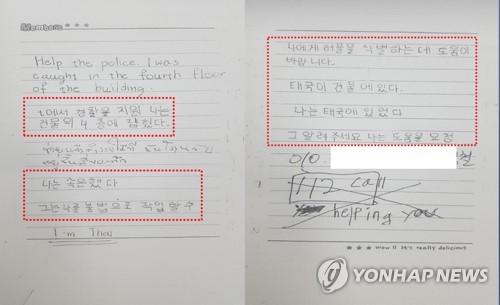 Members ★★★
Help the police. I was
caught in the fourth floor
of the building.
t에서 경찰을 지원 나는
건물의 4 층에 잡혔다.
나는 속은했다
그는 나를 불법으로 작업 할 수
I'm Thai
나에게 허물을 식별하는 데 도움이
바랍니다.
태국이 건물에 있다.
나는 태국에 있었다
그 알려주세요 나는 도움을 요청
010
112 call
helping you
★★★ wow!! It's really delicious
YONHAP NEWS